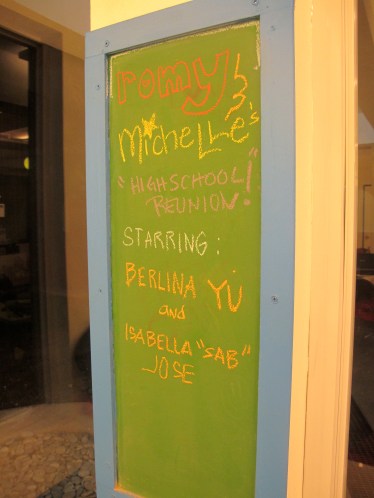 romy &
Michelle's
"HIGHSCHOOL
REUNION!"
STARRING:
BERLINA YU
and
ISABELLA "SAB"
JOSE